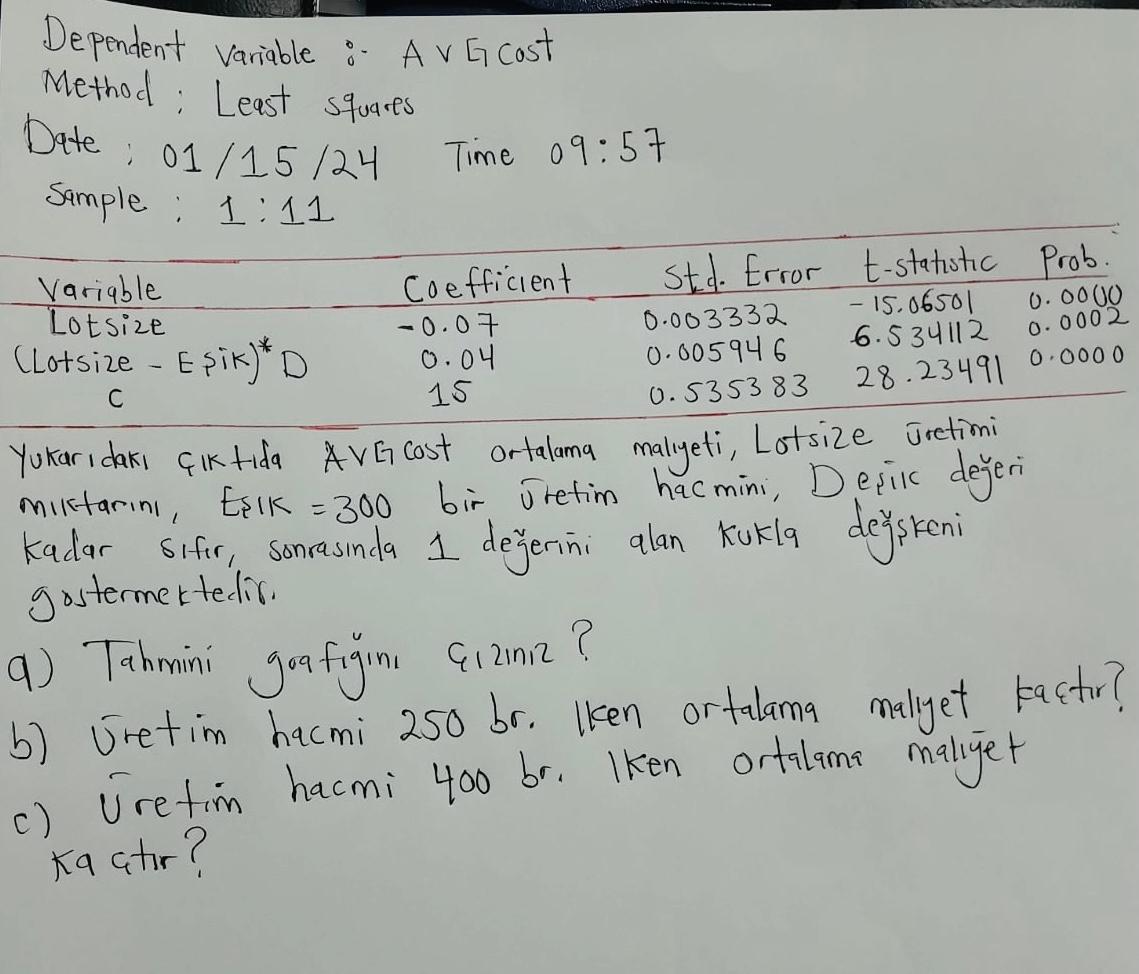 Dependent Variable :- AVGCost
Method ; Least squares
Date ; 01/15/24 Time 09:57
Sample : 1:11
Variable Coefficient Std. Error t-statistic Prob.
Lotsize -0.07 0.003332 -15.06501 0.0000
(Lotsize - Eşik)* D 0.04 0.005946 6.534112 0.0002
C 15 0.535383 28.23491 0.0000
Yukarıdakı çıktıda AVGCost ortalama malıyeti, Lotsize üretimi
mıktarını, Eşık = 300 bir üretim hacmini, D eşik değeri
kadar sıfır, sonrasında 1 değerini alan kukla değşkeni
gostermektedir.
a) Tahmini grafiğını çızınız?
b) Üretim hacmi 250 br. Iken ortalama malıyet kaçtır?
c) Üretim hacmi 400 br. Iken ortalama malıyet
kaçtır?